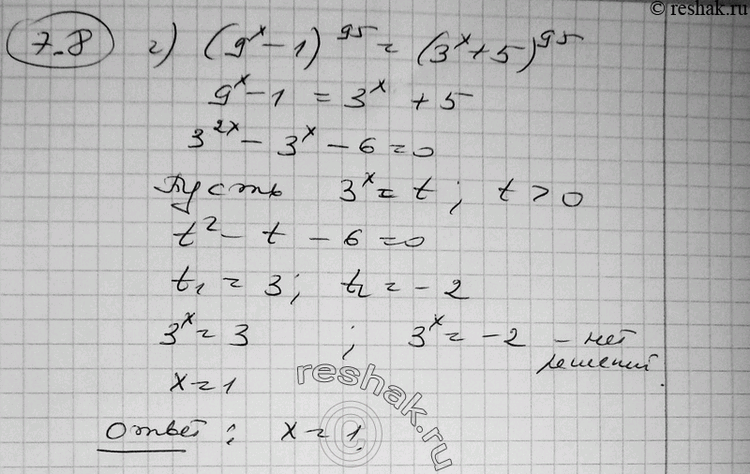 © reshak.ru
7.8 г) (9^x - 1)^95 = (3^x + 5)^95
9^x - 1 = 3^x + 5
3^2x - 3^x - 6 = 0
Пусть 3^x = t; t > 0
t^2 - t - 6 = 0
t1 = 3; t2 = -2
3^x = 3 ; 3^x = -2 - нет
решений.
x = 1
reshak.ru
©
Ответ: x = 1.